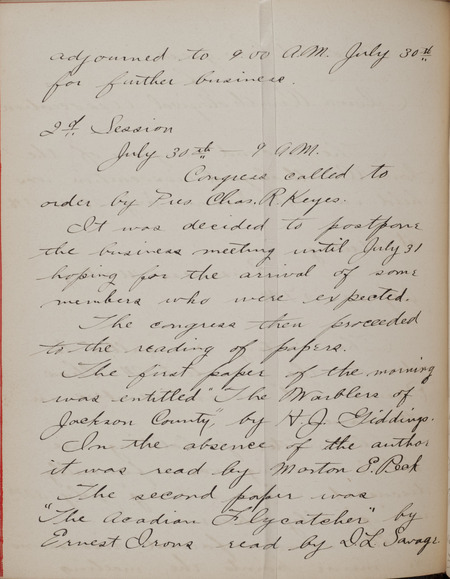 adjourned to 9.00 A.M. July 30th
for further business.
2d Session
July 30th — 9 A.M.
Congress called to
order by Pres Chas. R. Keyes.
It was decided to postpone
the business meeting until July 31
hoping for the arrival of some
members who were expected.
The congress then proceeded
to the reading of papers.
The first paper of the morning
was entitled "The Warblers of
Jackson County," by H. J. Giddings.
In the absence of the author
it was read by Morton E. Peck
The second paper was
"The Acadian Flycatcher" by
Ernest Irons read by D L Savage